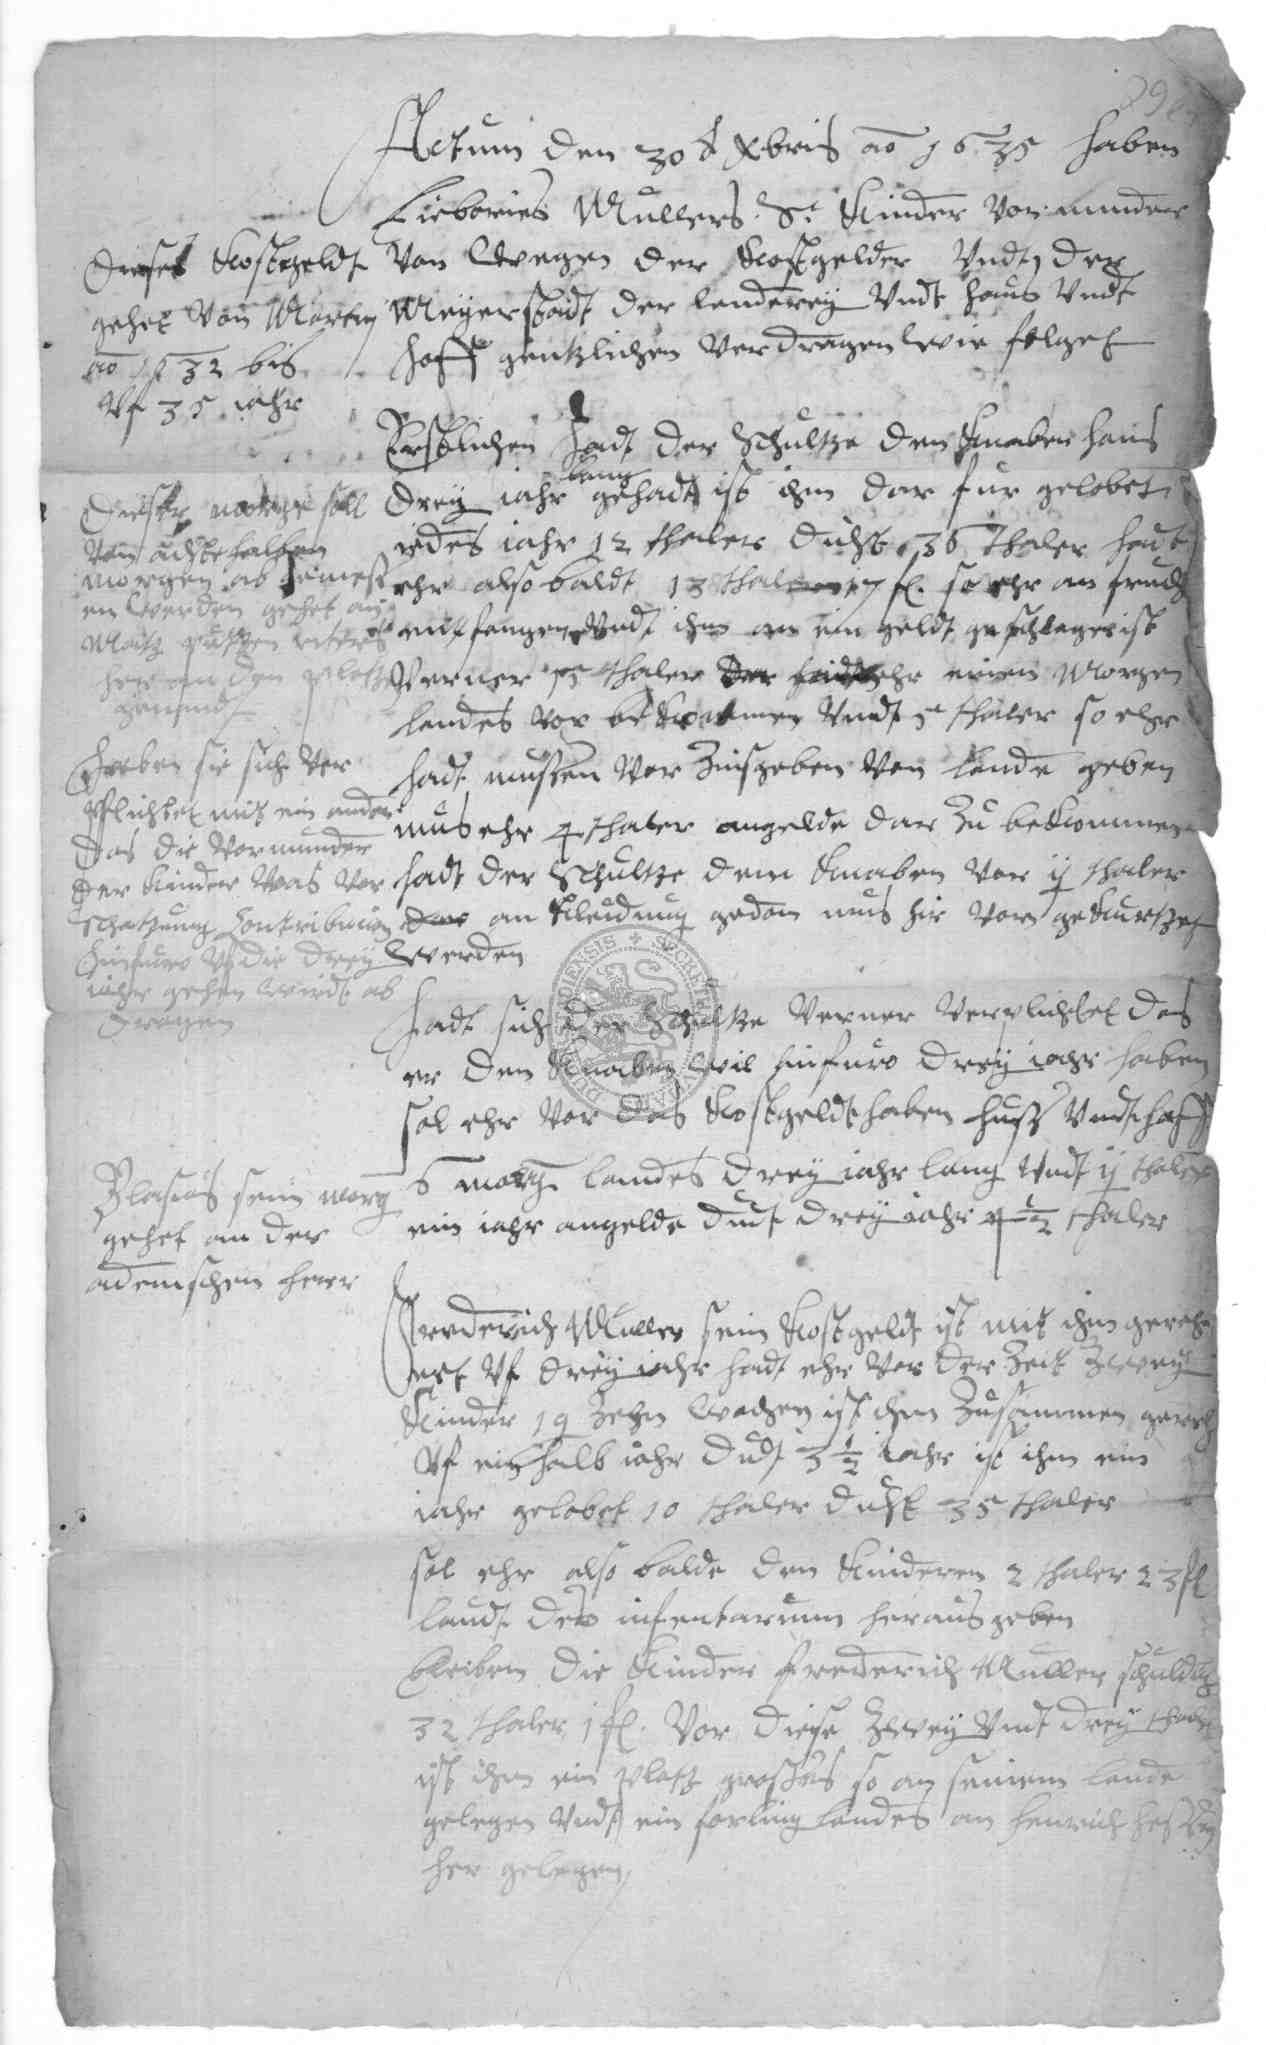 Actum den 30 Xbris ao 1635 haben
Liborius Mullers S. Kinder Vormunder
Von Wegen der Kostgelder Vndt der
Meyerstadt der lenderey Vndt haus Vndt
hoff gentzlichen Verdragen Wie folget
Erstlichen hadt der Schultze den Knaben hans
drey iahr lang gehadt ist ihm dar fur gelobet
iedes iahr 12 thaler duhst 36 thaler hadt
ehr also baldt 13 thaler 17 fl. so ehr an frucht
entfangen Vndt ihm an ein geldt geschlagen ist
Verner thaler ehr einen Morgen
landes vor bekommen Vndt thaler so ehr
hadt mussen Vor Zinsgeben Von lande geben
mus ehr 4 thaler angelde dar Zu bekommen
hadt der Schultze dem Knaben Vor ij thaler
an Kleidung gedan mus hir Von gekurtzet
Werden
hadt sich der Schultze Verner Verplichtet das
er den Knaben Wil hinfuro drey iahr haben
sol ehr Vor das Kostgeldt haben huss Vndt hoff
6 morg landes drey iahr lang Vndt ij thaler
ein iahr angelde dudt drey iahr 4 1/2 thaler
Frederich Muller sein Kostgeldt ist mit ihm gerech
net Vf drey iahr hadt ehr Vor der Zeit Zwey
Kinder 19 Zehn Wochen ist ihm Zusammen gerech
Vf ein halb iahr dudt 3 1/2 iahr ist ihm ein
iahr gelobet 10 thaler duhst 35 thaler
sol ehr also balde den Kinderen 2 thaler 23 fl
laudt des infentarium heraus geben
bleiben die Kinder Frederich Muller schuldig
32 thaler 1 fl. Vor diese Zwey Vndt drey thaler
ist ihm ein platz so an seinem lande
gelegen Vndt ein forling landes an Henrich
her gelegen
dieses Kostgeldt
gehet Von Marting
ao 1632 bis
Vf 35 iahr
dieser morge soll
Von achtehalben
morgen ab gemess
en Werden gehet an
her an den platz
genandt
haben sie sich Ver
pflichtet mit ein ander
das die Vormunder
der Kinder Was Vor
Schatzung Contribution
hinfuro Vf die drey
iahr gehen Wirdt ab
dragen
Blasius sein morg
gehet an der
ademschen herr